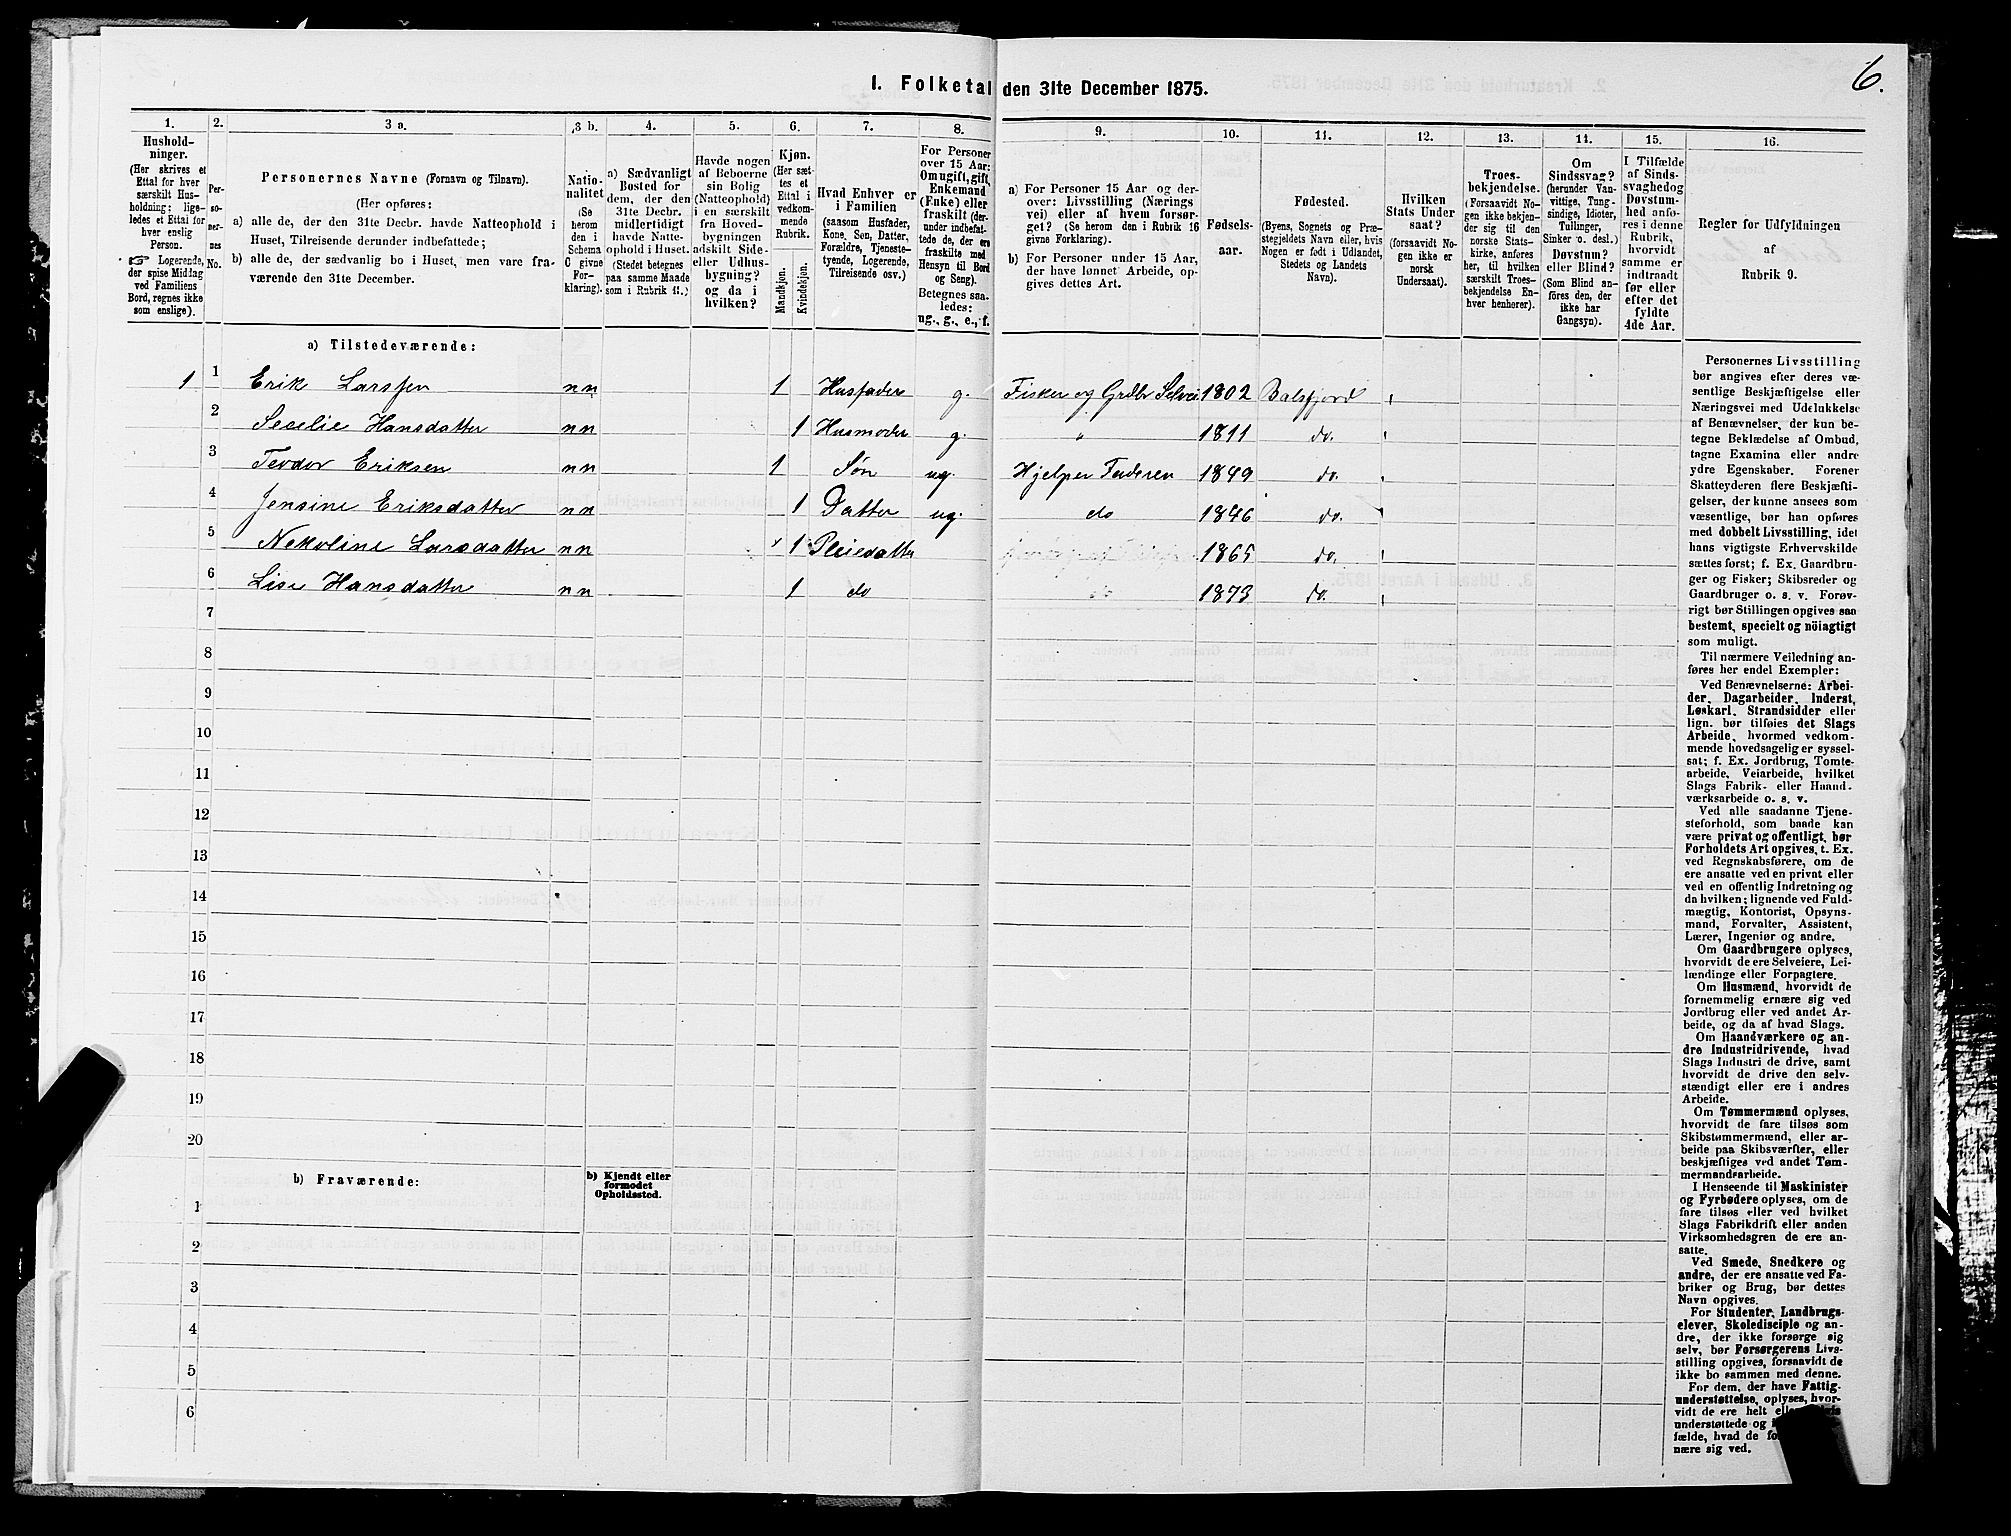 6.
1. Folketal den 31te December 1875.
1. 2. 3 a. 3 b. 4. 5. 6. 7. 8. 9. 10. 11. 12. 13. 14. 15. 16.
Hushold-
ninger.
(Her skrives et
Ettal for hver
særskilt Hus-
holdning; lige-
ledes et Ettal for
hver enslig
Person.
☞ Logerende,
der spise Middag
ved Familiens
Bord, regnes ikke
som enslige).
Per-
so-
ner-
nes
No.
Personernes Navne (Fornavn og Tilnavn).
(Her opføres:
a) alle de, der den 31te Decbr. havde Natteophold i
Huset, Tilreisende derunder indbefattede;
b) alle de, der sædvanlig bo i Huset, men vare fra-
værende den 31te December.
Natio-
nalitet
(Se
herom
den i
Schema
C givne
For-
klaring).
a) Sædvanligt
Bosted for
dem, der den
31te Decbr.
midlertidigt
havde Natte-
ophold i Huset.
(Stedet betegnes
paa samme Maade
som i Rubrik 11.)
Havde nogen
af Beboerne
sin Bolig
(Natteophold)
i en særskilt
fra Hoved-
bygningen
adskilt Side-
eller Udhus-
bygning?
og da i
hvilken?
Kjøn.
(Her sæt-
tes et
Ettal i
vedkom-
mende
Rubrik.
Mandkjøn.
Kvindekjøn.
Hvad Enhver er
i Familien
(saasom Husfader,
Kone, Søn, Datter,
Forældre, Tjeneste-
tyende, Logerende,
Tilreisende osv.)
For Personer
over 15 Aar:
Om ugift, gift,
Enkemand
(Enke) eller
fraskilt (der-
under indbefat-
tede de, der ere
fraskilte med
Hensyn til Bord
og Seng).
Betegnes saa-
ledes:
ug., g., e., f.
a) For Personer 15 Aar og der-
over: Livsstilling (Nærings
vei) eller af hvem forsør-
get? (Se herom den i Rubrik 16
givne Forklaring).
b) For Personer under 15 Aar,
der have lønnet Arbeide, op-
gives dettes Art.
Fødsels-
aar.
Fødested.
(Byens, Sognets og Præ-
stegjeldets Navn eller, hvis
Nogen er født i Udlandet,
Stedets og Landets
Navn).
Hvilken
Stats Under
saat?
(forsaavidt No-
gen ikke er
norsk
Undersaat).
Troes-
bekjendelse.
(Forsaavidt No-
gen ikke bekjen-
der sig til den
norske Stats-
kirke, anføres
her, til hvilken
særskilt Troes-
bekjendelse En-
hver henhører).
Om
Sindssvag?
(herunder Van-
vittige, Tung-
sindige, Idioter,
Tullinger,
Sinker o. desl.)
Døvstum?
eller Blind?
(Som Blind an-
føres den, der
ikke har
Gangsyn).
I Tilfælde
af Sinds-
svaghed og
Døvstum-
hed anfø-
res i denne
Rubrik,
hvorvidt
samme er
indtraadt
før eller
efter det
fyldte
4de Aar.
Regler for Udfyldningen
af
Rubrik 9.
a) Tilstedeværende:
1 1 Erik Larssen nn 1 Husfader g. Fisker og Grdbr Selvei 1802 Balsfjord
2 Seselie Hansdatter nn 1 Husmoder g. " 1811 do.
3 Teodor Eriksen nn 1 Søn ug. Hjelper Faderen 1849 do.
4 Jensine Eriksdatter nn 1 Datter ug. do 1846 do.
5 Nekoline Larsdatter nn 1 Pleiedatter 1865 do.
6 Lise Hansdatter nn 1 do 1873 do.
7
8
9
10
11
12
13
14
15
16
17
18
19
20
b) Fraværende:
b) Kjendt eller
formodet
Opholdssted.
1
2
3
4
5
6
Personernes Livsstilling
bør angives efter deres væ-
sentlige Beskjæftigelse eller
Næringsvei med Udelukkelse
af Benævnelser, der kun be-
tegne Beklædelse af Ombud,
tagne Examina eller andre
ydre Egenskaber. Forener
Skatteyderen flere Beskjæfti-
gelser, der kunne ansees som
væsentlige, bør han opføres
med dobbelt Livsstilling, idet
hans vigtigste Erhvervskilde
sættes først; f. Ex. Gaardbru-
ger og Fisker; Skibsreder og
Gaardbruger o. s. v. Forøv-
rigt bør Stillingen opgives saa
bestemt, specielt og nöiagtigt
som muligt.
Til nærmere Veiledning an-
føres her endel Exempler:
Ved Benævnelserne: Arbei-
der, Dagarbeider, Inderst,
Løskarl, Strandsidder eller
lign. bør tilføies det Slags
Arbeide, hvormed vedkom-
mende hovedsagelig er syssel-
sat; f. Ex. Jordbrug, Tomte-
arbeide, Veiarbeide, hvilket
Slags Fabrik- eller Haand-
værksarbeide o. s. v.
Ved alle saadanne Tjene-
steforhold, som baade kan
være privat og offentligt, bør
Forholdets Art opgives, t. Ex.
ved Regnskabsførere, om de
ere ansatte ved en privat eller
ved en offentlig Indretning og
da hvilken; lignende ved Fuld-
mægtig, Kontorist, Opsyns-
mand, Forvalter, Assistent,
Lærer, Ingeniør og andre.
Om Gaardbrugere oplyses,
hvorvidt de ere Selveiere, Lei-
lændinge eller Forpagtere.
Om Husmænd, hvorvidt de
fornemmelig ernære sig ved
Jordbrug eller ved andet Ar-
beide, og da af hvad Slags.
Om Haandværkere og an-
dre Industridrivende, hvad
Slags Industri de drive, samt
hvorvidt de drive den selv-
stændigt eller ere i andres
Arbeide.
Om Tømmermænd oplyses,
hvorvidt de fare tilsøs som
Skibstømmermænd, eller ar-
beide paa Skibsværfter, eller
beskjæftiges ved andet Tøm-
mermandsarbeide.
I Henseende til Maskinister
og Fyrbødere oplyses, om de
fare tilsøs eller ved hvilket
Slags Fabrikdrift eller anden
Virksomhedsgren de ere an-
satte.
Ved Smede, Snedkere og
andre, der ere ansatte ved Fa-
briker og Brug, bør dettes
Navn opgives.
For Studenter, Landbrugs-
elever, Skoledisciple og an-
dre, der ikke forsørge sig
selv, bør Forsørgerens Livs-
stilling opgives, forsaavidt de
ikke bo sammen med denne.
For dem, der have Fattig-
understøttelse, oplyses, hvor-
vidt de ere helt
understøttede og
fælde, hvad de
nære sig ved.